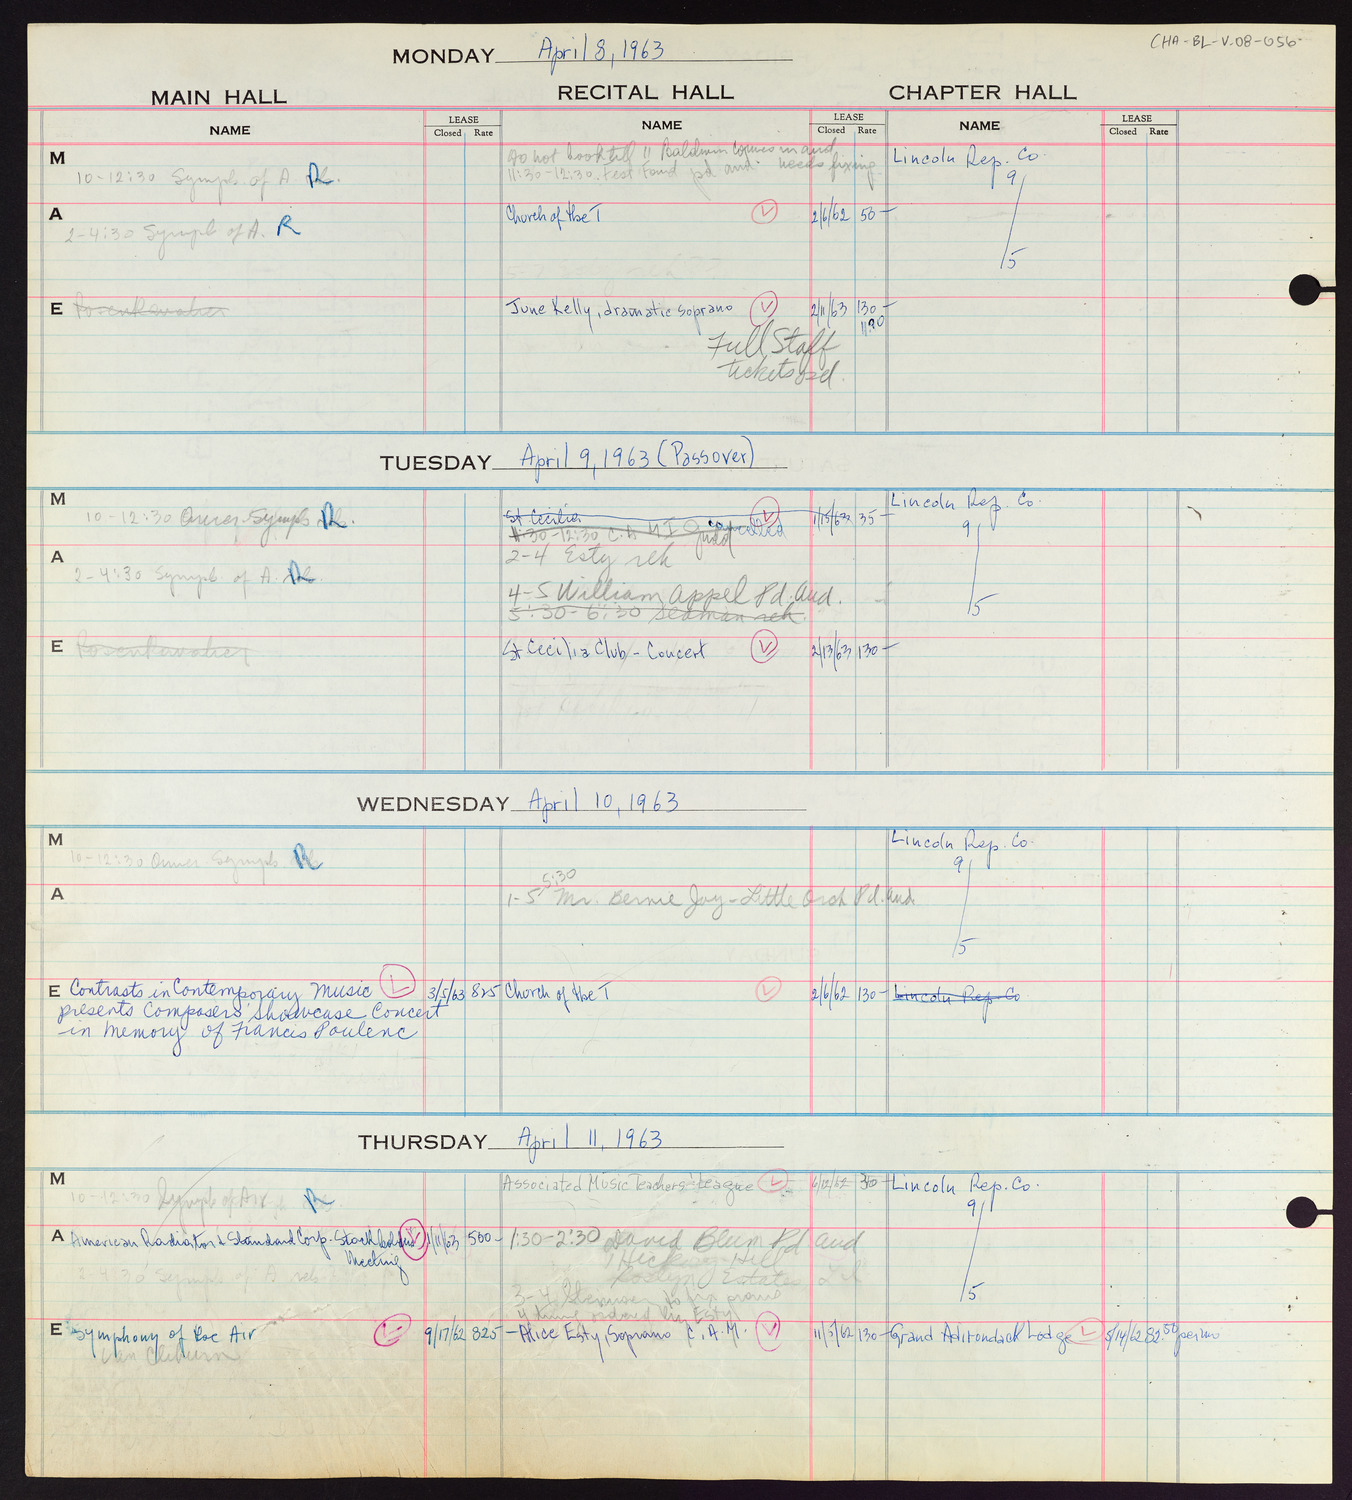 CHA-BL-V.08-056
MONDAY April 8, 1963
MAIN HALL RECITAL HALL CHAPTER HALL
NAME LEASE Closed Rate NAME LEASE Closed Rate NAME LEASE Closed Rate
M
10-12:30 Symph. of A
Do not book till 11 Baldwin comes in and
11:30-12:30 pd aud. needs fixing
Lincoln Rep. Co.
9
5
A
2-4:30 Symph of A. R
Church of the T 2/6/62 50-
E Rosenkavalier
June Kelly, dramatic soprano 2/11/63 130-
1130
Full Staff
tickets ord.
TUESDAY April 9, 1963 (Passover)
M
10-12:30 Amer. Symph
St Cecilia 1/15/63 35-
11:30-12:30 cancelled
Lincoln Rep. Co
9
5
A
2-4:30 Symph. of A.
2-4 Esty reh
4-5 William Appel Pd. Aud.
5:30-6:30 Seaman reh
E Rosenkavalier
St Cecilia Club - Concert 2/13/63 130-
WEDNESDAY April 10, 1963
M
10-12:30 Amer Symph
Lincoln Rep. Co.
9
5
A
5:30
1-5 Mr. Bernie Jay - Little Orch Pd. Aud.
E Contrasts in Contemporary Music 3/5/63 825
presents Composers' Showcase Concert
in memory of Francis Poulenc
Church of the T 2/6/62 130-
Lincoln Rep Co
THURSDAY April 11, 1963
M
10-12:30 Symph of Air
Associated Music Teachers' League 6/12/62 30-
Lincoln Rep. Co.
9
5
A American Radiator & Standard Corp. Stockholders 1/11/63 500-
Meeting
2-4:30 Symph of A reh
1:30-2:30 David Blum Pd Aud
Hickory Hill
Roslyn Estates, L.I.
E Symphony of the Air 9/17/62 825-
Van Cliburn
Alice Esty, Soprano C.A.M. 11/5/62 130-
Grand Adirondack Lodge 5/14/62 82.50 per mo